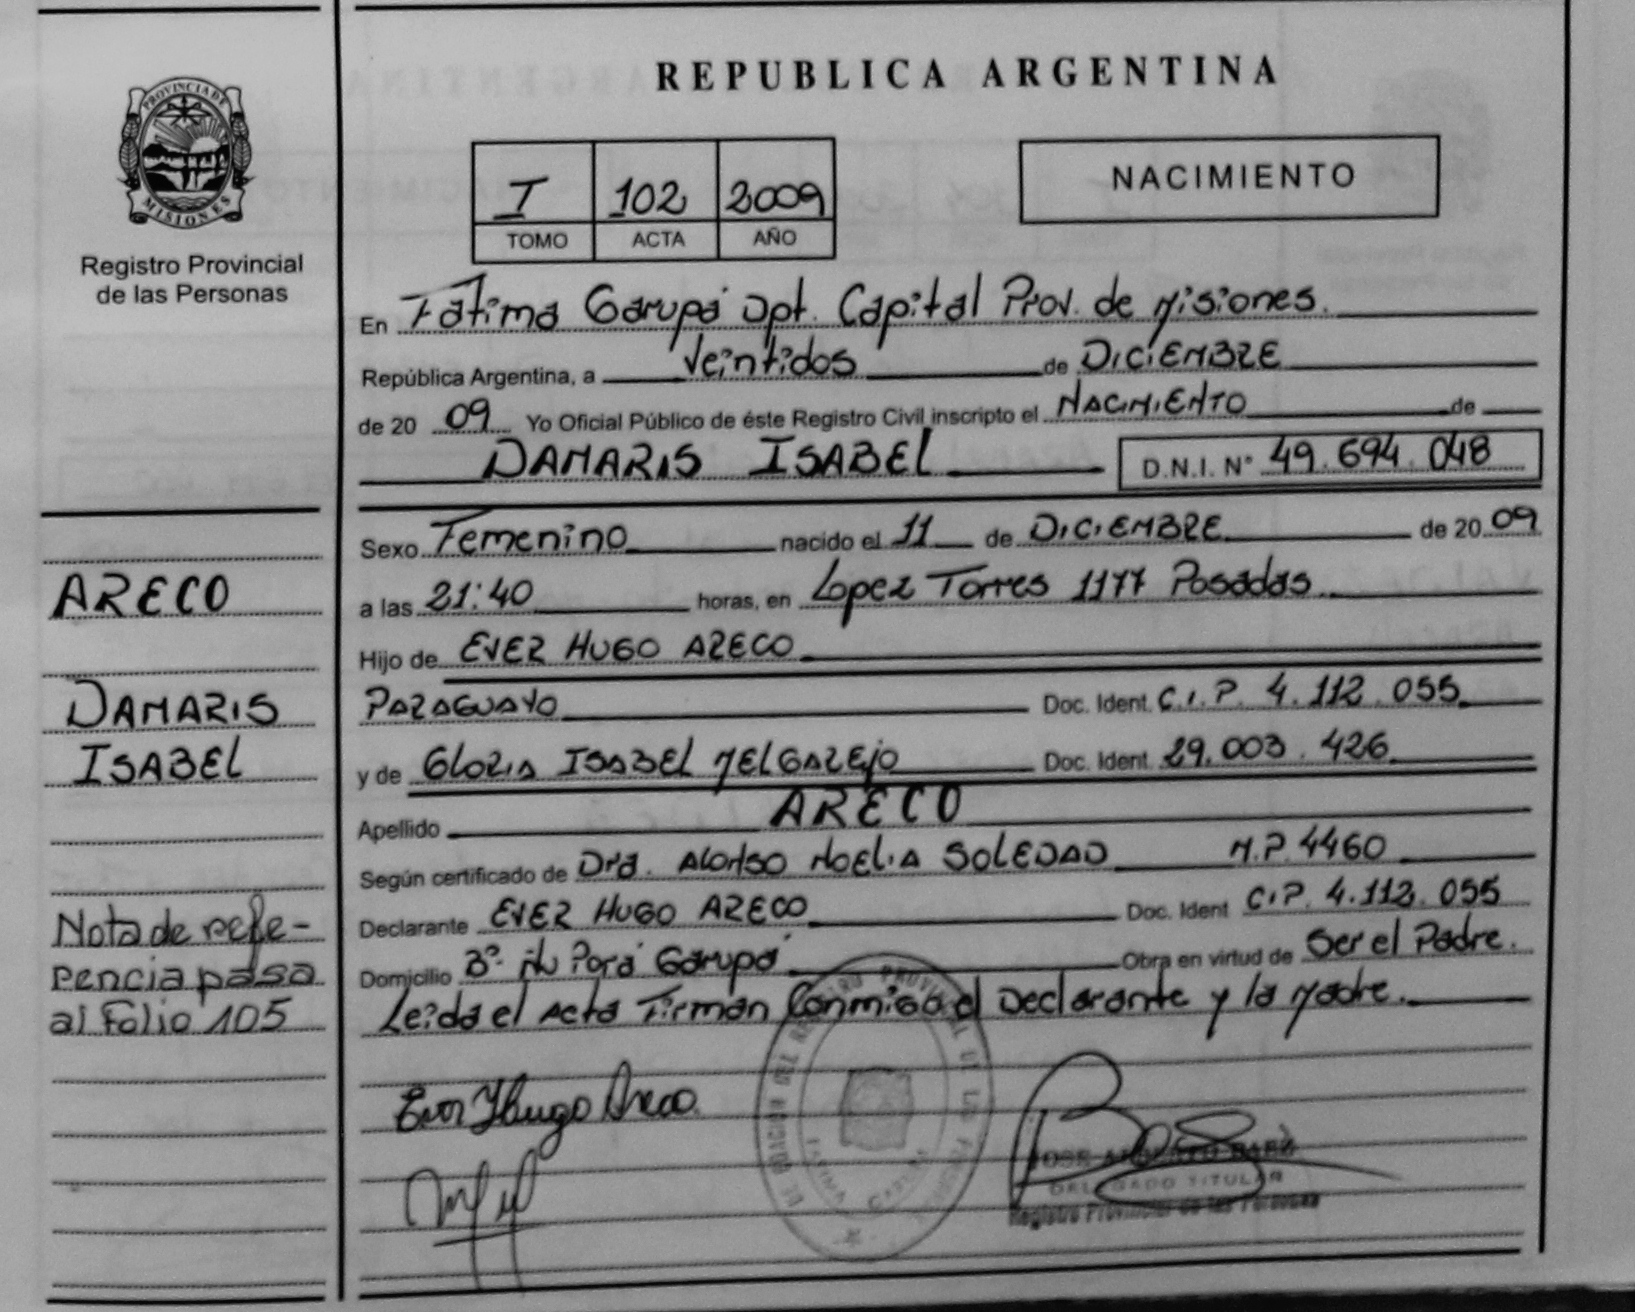 REPUBLICA ARGENTINA
PROVINCIA DE
MISIONES
Registro Provincial
de las Personas
I 102 2009
TOMO ACTA AÑO
NACIMIENTO
En Fátima Garupá Dpt. Capital Prov. de Misiones.
República Argentina, a Veintidos de DICIEMBRE
de 20 09 Yo Oficial Público de éste Registro Civil inscripto el NACIMIENTO de
DAMARIS ISABEL D.N.I. N° 49.694.048
Sexo Femenino nacido el 11 de DICIEMBRE de 20 09
a las 21:40 horas, en Lopez Torres 1177 Posadas
Hijo de EVER HUGO ARECO
PARAGUAYO Doc. Ident. C.I.P. 4.112.055
y de GLORIA ISABEL MELGAREJO Doc. Ident. 29.003.426
Apellido ARECO
Según certificado de Dra. ALONSO NOELIA SOLEDAD M.P. 4460
Declarante EVER HUGO ARECO Doc. Ident C.I.P. 4.112.055
Domicilio B° Ñu Porá Garupá Obra en virtud de Ser el Padre.
Leida el Acta Firman Conmigo el Declarante y la Madre.
ARECO
DAMARIS
ISABEL
Nota de refe-
rencia pasa
al Folio 105
Ever Hugo Areco
JOSE BAEZ
DELEGADO TITULAR
Registro Provincial de las Personas